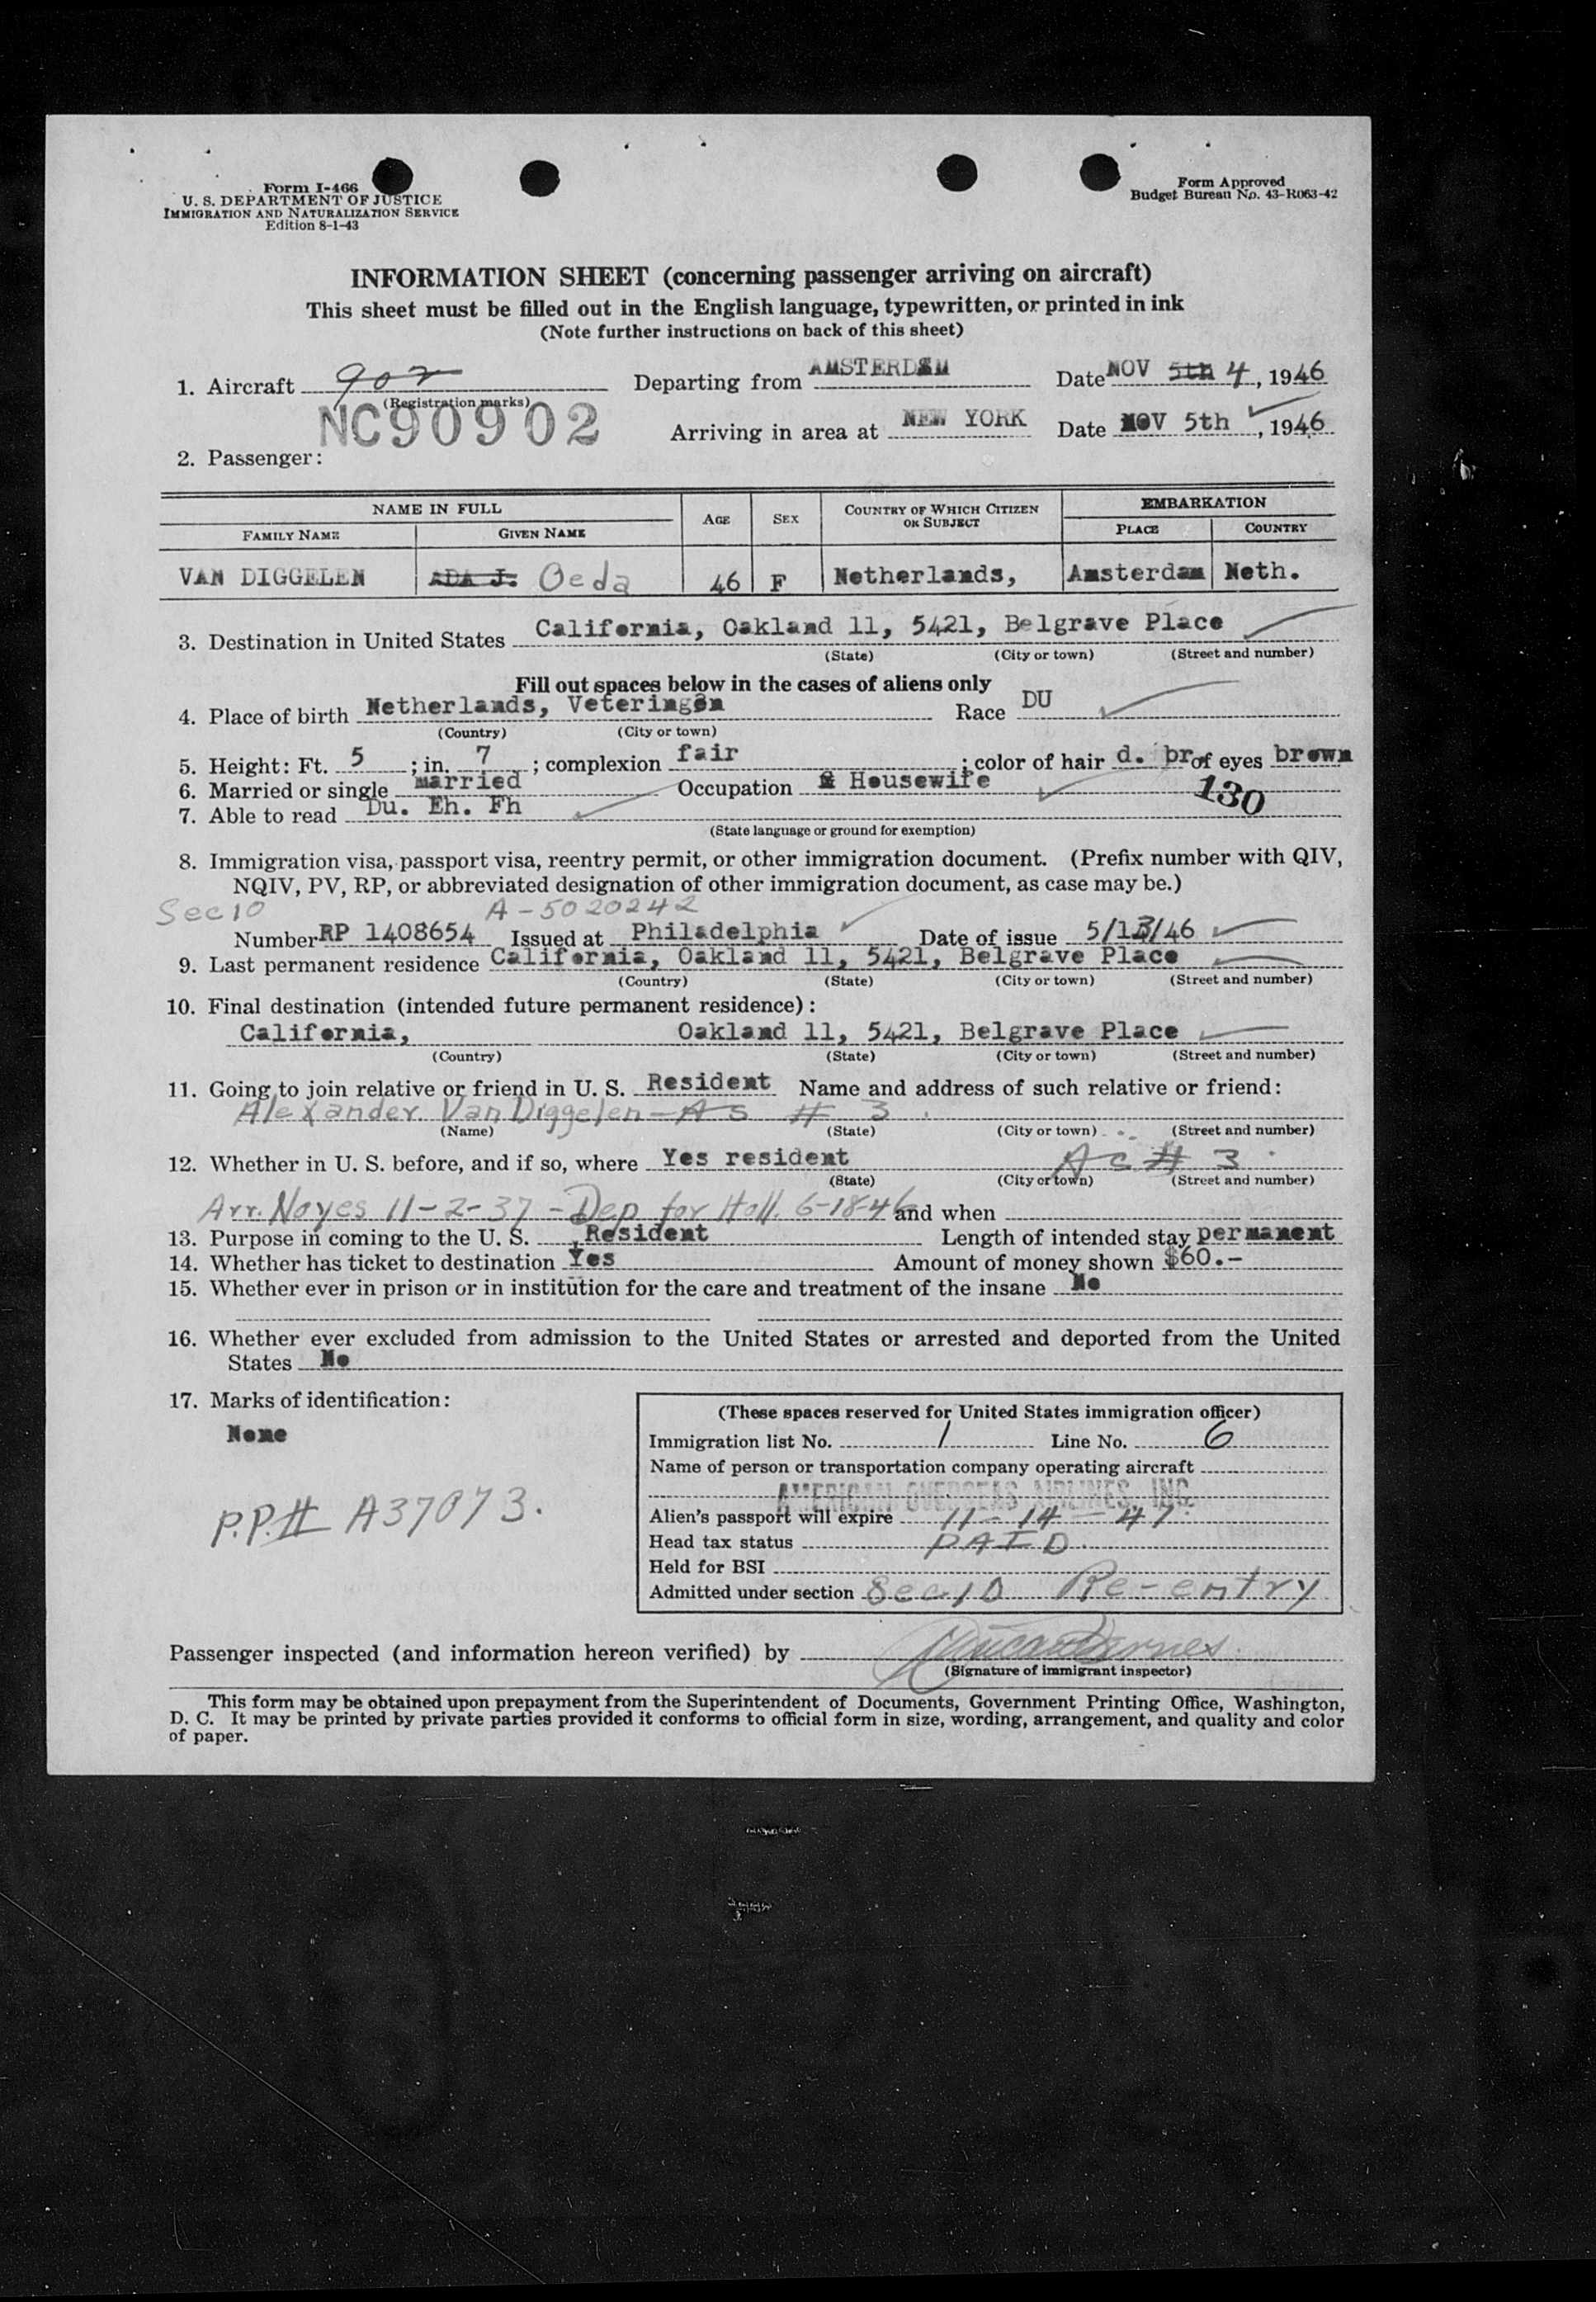 Form I-466
U. S. DEPARTMENT OF JUSTICE
IMMIGRATION AND NATURALIZATION SERVICE
Edition 8-1-43
Form Approved
Budget Bureau No. 43-R063-42
INFORMATION SHEET (concerning passenger arriving on aircraft)
This sheet must be filled out in the English language, typewritten, or printed in ink
(Note further instructions on back of this sheet)
1. Aircraft 902 Departing from AMSTERDAM Date NOV 5th 4, 1946
(Registration marks)
NC90902 Arriving in area at NEW YORK Date NOV 5th, 1946
2. Passenger:
NAME IN FULL AGE SEX COUNTRY OF WHICH CITIZEN OR SUBJECT EMBARKATION
FAMILY NAME GIVEN NAME PLACE COUNTRY
VAN DIGGELEN ADA J. Oeda 46 F Netherlands, Amsterdam Neth.
3. Destination in United States California, Oakland 11, 5421, Belgrave Place
(State) (City or town) (Street and number)
Fill out spaces below in the cases of aliens only
4. Place of birth Netherlands, Veteringen Race DU
(Country) (City or town)
5. Height: Ft. 5 ; in. 7 ; complexion fair ; color of hair d. br of eyes brown
6. Married or single married Occupation Housewife
130
7. Able to read Du. Eh. Fh
(State language or ground for exemption)
8. Immigration visa, passport visa, reentry permit, or other immigration document. (Prefix number with QIV,
NQIV, PV, RP, or abbreviated designation of other immigration document, as case may be.)
Sec 10 A-5020242
Number RP 1408654 Issued at Philadelphia Date of issue 5/13/46
9. Last permanent residence California, Oakland 11, 5421, Belgrave Place
(Country) (State) (City or town) (Street and number)
10. Final destination (intended future permanent residence):
California, Oakland 11, 5421, Belgrave Place
(Country) (State) (City or town) (Street and number)
11. Going to join relative or friend in U. S. Resident Name and address of such relative or friend:
Alexander Van Diggelen - As # 3.
(Name) (State) (City or town) (Street and number)
12. Whether in U. S. before, and if so, where Yes resident As # 3
(State) (City or town) (Street and number)
Arr. Noyes 11-2-37 - Dep for Holl. 6-18-46 and when
13. Purpose in coming to the U. S. Resident Length of intended stay permanent
14. Whether has ticket to destination Yes Amount of money shown $60.-
15. Whether ever in prison or in institution for the care and treatment of the insane No
16. Whether ever excluded from admission to the United States or arrested and deported from the United
States No
17. Marks of identification:
None
P.P.# A37073.
(These spaces reserved for United States immigration officer)
Immigration list No. 1 Line No. 6
Name of person or transportation company operating aircraft
AMERICAN OVERSEAS AIRLINES, INC.
Alien's passport will expire 11-14-47.
Head tax status PAID.
Held for BSI
Admitted under section Sec 10 Re-entry
Passenger inspected (and information hereon verified) by
(Signature of immigrant inspector)
This form may be obtained upon prepayment from the Superintendent of Documents, Government Printing Office, Washington,
D. C. It may be printed by private parties provided it conforms to official form in size, wording, arrangement, and quality and color
of paper.